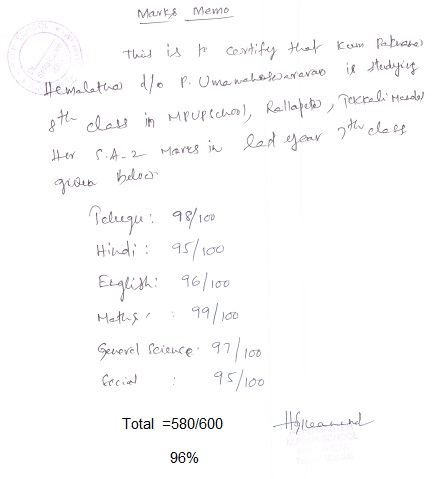 Marks Memo
This is to certify that Kum
Hemalatha d/o P. Umamaheswararao is studying
8th class in MPUPSchool, Rallapeta, Tekkali Mandal
Her S.A-2 Marks in last year 7th class
given below
Telugu: 98/100
Hindi: 95/100
English: 96/100
Maths : 99/100
General Science: 97/100
Social : 95/100
Total =580/600
96%